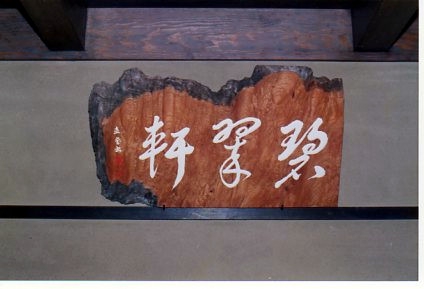 碧翠軒